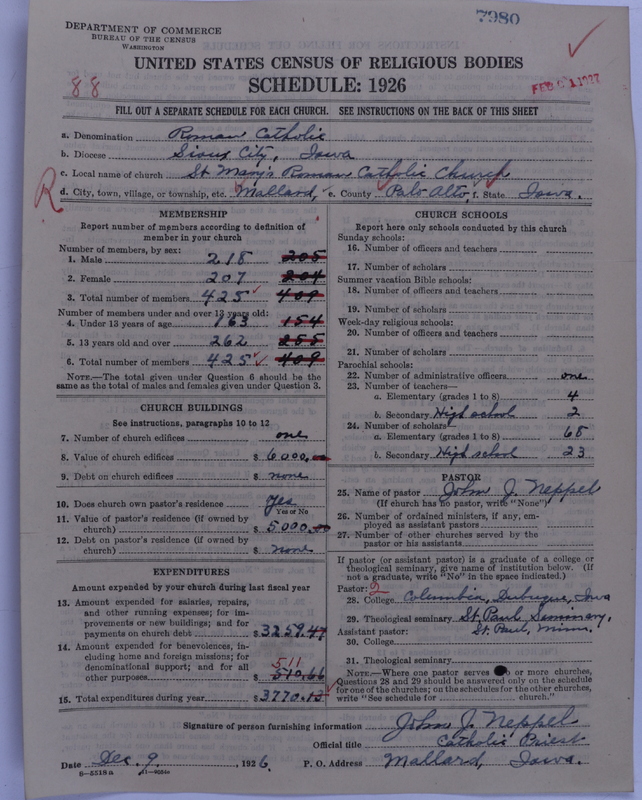 7980
DEPARTMENT OF COMMERCE
BUREAU OF THE CENSUS
WASHINGTON
UNITED STATES CENSUS OF RELIGIOUS BODIES
SCHEDULE: 1926
88
FILL OUT A SEPARATE SCHEDULE FOR EACH CHURCH. SEE INSTRUCTIONS ON THE BACK OF THIS SHEET
a. Denomination Roman Catholic
b. Diocese Sioux City, Iowa
c. Local name of church St Mary's Roman Catholic Church
R
d. City, town, village, or township, etc. Mallard, e. County Palo Alto, f. State Iowa.
MEMBERSHIP
Report number of members according to definition of
member in your church
Number of members, by sex:
1. Male 218 205
2. Female 207 204
3. Total number of members 425 409
Number of members under and over 13 years old:
4. Under 13 years of age 163 154
5. 13 years old and over 262 255
6. Total number of members 425 409
NOTE.—The total given under Question 6 should be the
same as the total of males and females given under Question 3.
CHURCH BUILDINGS
See instructions, paragraphs 10 to 12
7. Number of church edifices one
8. Value of church edifices $ 6000.00
9. Debt on church edifices $ none
10. Does church own pastor's residence yes
Yes or No
11. Value of pastor's residence (if owned by
church) $ 5000.00
12. Debt on pastor's residence (if owned by
church) $ none
EXPENDITURES
Amount expended by your church during last fiscal year
13. Amount expended for salaries, repairs,
and other running expenses; for im-
provements or new buildings; and for
payments on church debt $ 3259.47
14. Amount expended for benevolences, in-
cluding home and foreign missions; for
denominational support; and for all
511
other purposes $ 510.66
15. Total expenditures during year $ 3770.13
CHURCH SCHOOLS
Report here only schools conducted by this church
Sunday schools:
16. Number of officers and teachers
17. Number of scholars
Summer vacation Bible schools:
18. Number of officers and teachers
19. Number of scholars
Week-day religious schools:
20. Number of officers and teachers
21. Number of scholars
Parochial schools:
22. Number of administrative officers one
23. Number of teachers—
a. Elementary (grades 1 to 8) 4
b. Secondary High school 2
24. Number of scholars—
a. Elementary (grades 1 to 8) 68
b. Secondary High school 23
PASTOR
25. Name of pastor John J. Neppel
(If church has no pastor, write "None")
26. Number of ordained ministers, if any, em-
ployed as assistant pastors
27. Number of other churches served by the
pastor or his assistants
If pastor (or assistant pastor) is a graduate of a college or
theological seminary, give name of institution below. (If
not a graduate, write "No" in the space indicated.)
Pastor: 2
28. College Columbia, Dubuque, Iowa
29. Theological seminary St. Paul Seminary,
Assistant pastor: St. Paul, Minn.
30. College
31. Theological seminary
NOTE.—Where one pastor serves or more churches,
Questions 28 and 29 should be answered only on the schedule
for one of the churches; on the schedules for the other churches,
write "See schedule for church."
Signature of person furnishing information John J. Neppel
Official title Catholic Priest
Date Dec. 9, 1926. P. O. Address Mallard, Iowa.